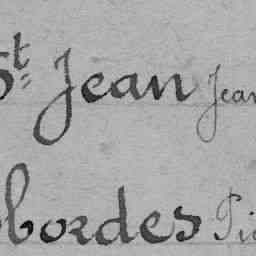 St Jean Jean
bordes Pie